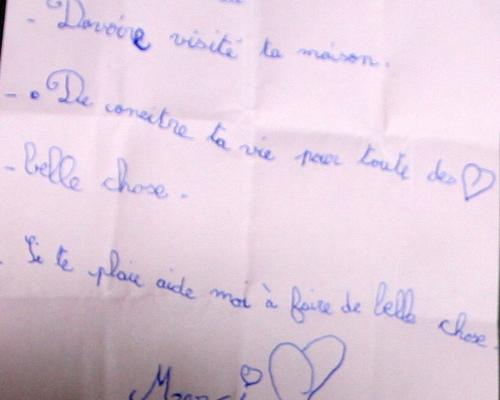 - Davoire visité ta maison.
- • De conaitre ta vie pour toute des
- belle chose.
Si te plaie aide moi à faire de belle chose.
Merci